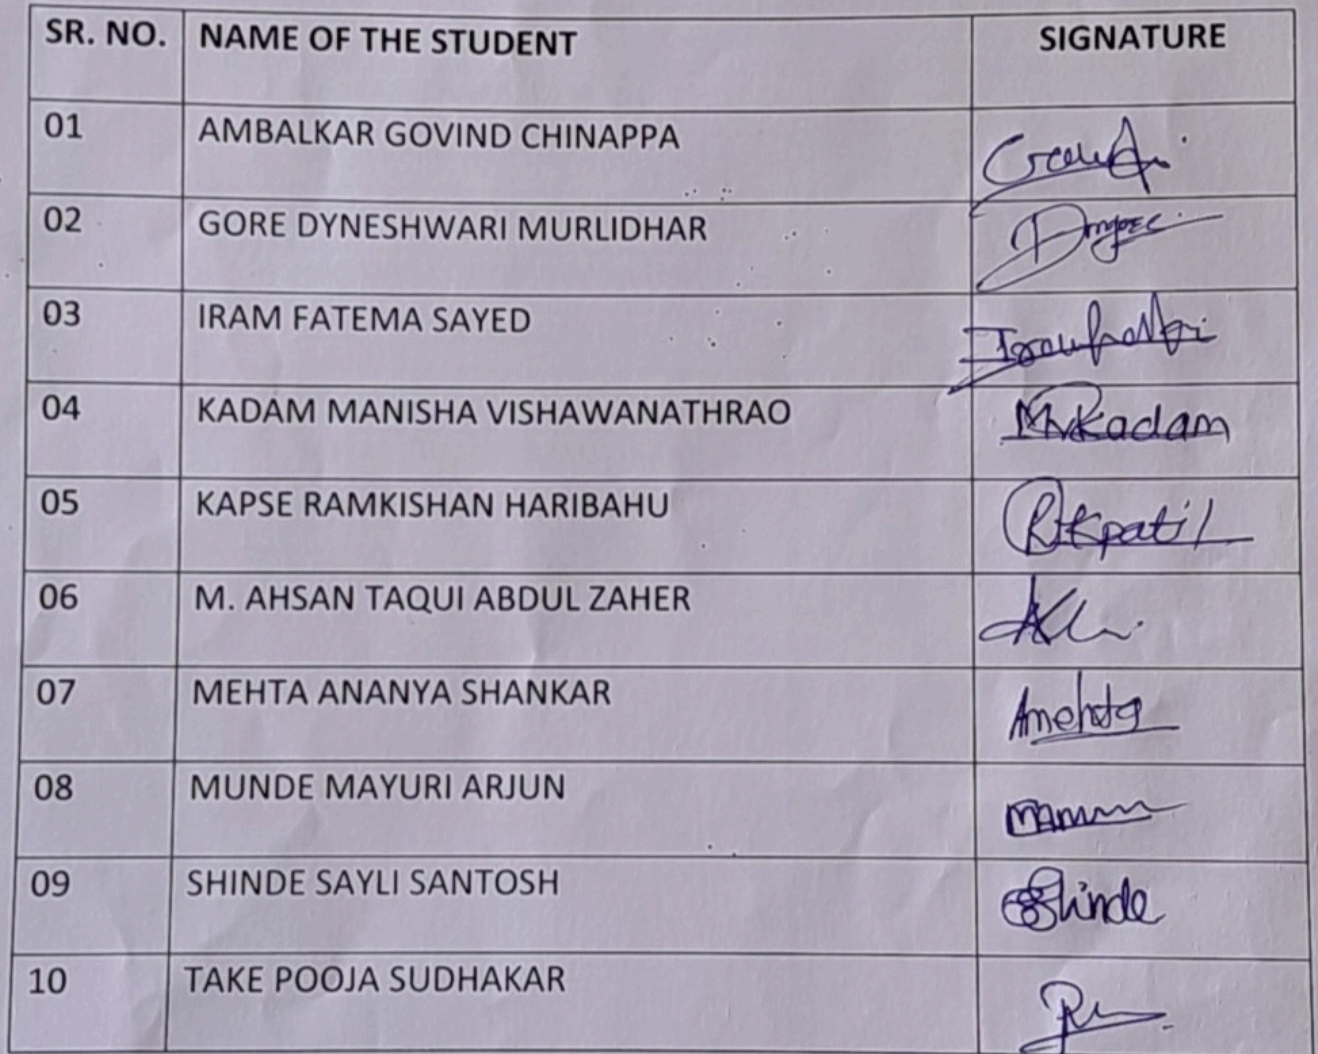 SR. NO. NAME OF THE STUDENT SIGNATURE
01 AMBALKAR GOVIND CHINAPPA
02 GORE DYNESHWARI MURLIDHAR
03 IRAM FATEMA SAYED
04 KADAM MANISHA VISHAWANATHRAO MVKadam
05 KAPSE RAMKISHAN HARIBAHU RKpatil
06 M. AHSAN TAQUI ABDUL ZAHER
07 MEHTA ANANYA SHANKAR Amehta
08 MUNDE MAYURI ARJUN
09 SHINDE SAYLI SANTOSH Shinde
10 TAKE POOJA SUDHAKAR